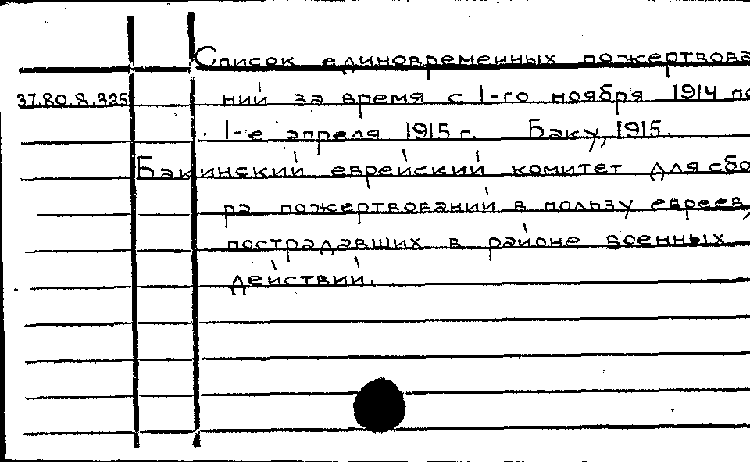 Список единовременных пожертвова
37.80.8.325 ний за время с 1-го ноября 1914 по
1-е апреля 1915 г. Баку, 1915.
Бакинский еврейский комитет для сбо
ра пожертвований в пользу евреев,
пострадавших в районе военных
действий.